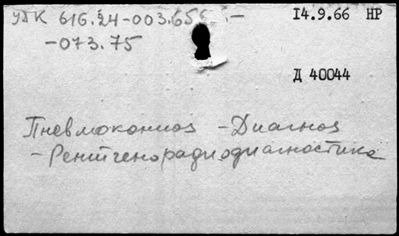 УДК 616.24-003.656 :-
14.9.66 НР
-073.75
Д 40044
Пневмокониоз -Диагноз
-Рентгенорадиодиагностика